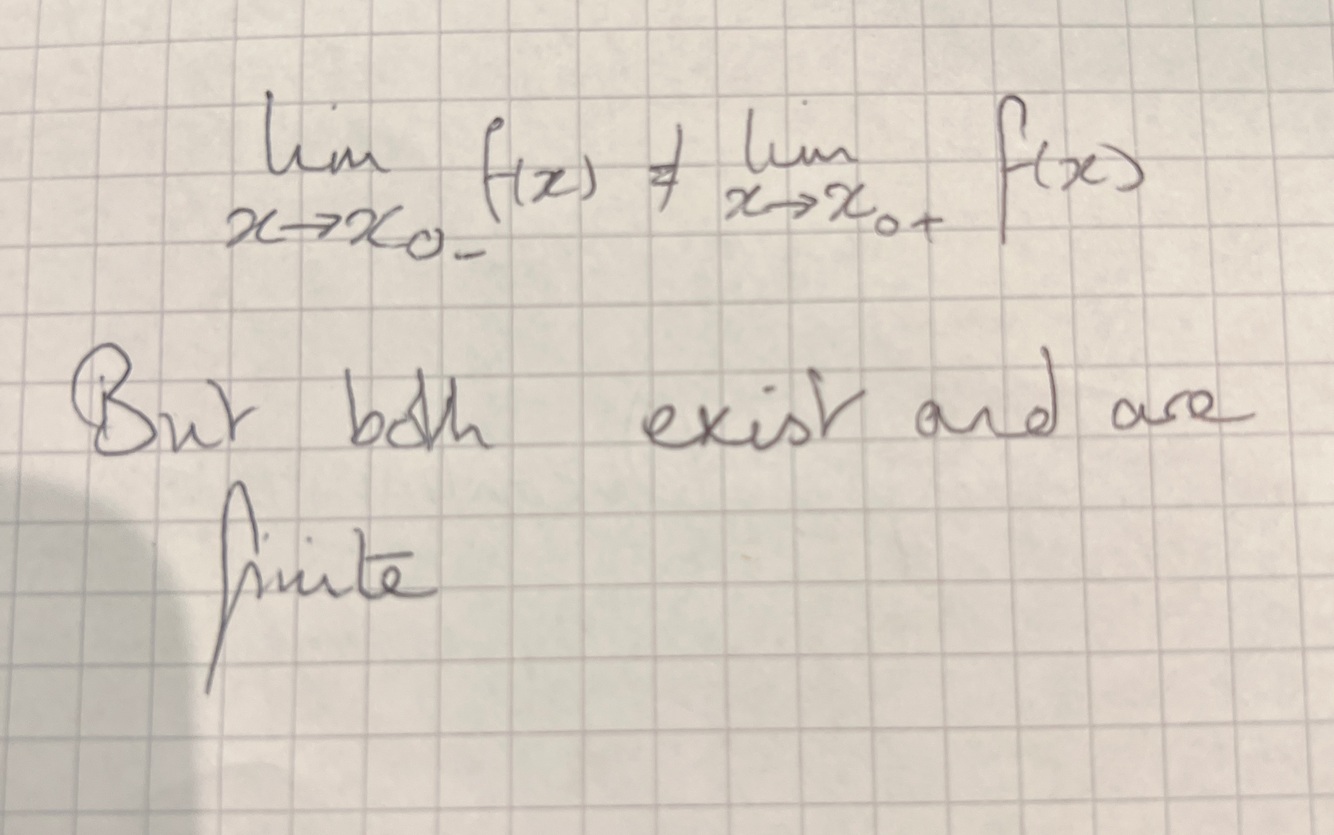 lim x→x₀₋ f(x) ≠ lim x→x₀₊ f(x)
But both exist and are
finite